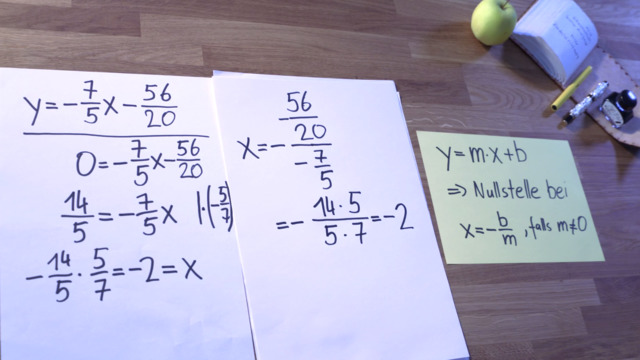 y=-7/5x-56/20
0=-7/5x-56/20
14/5=-7/5x |·(-5/7)
-14/5·5/7=-2=x
x=-(56/20)/(-7/5)
=-(14·5)/(5·7)=-2
y=m·x+b
⇒ Nullstelle bei
x=-b/m, falls m≠0